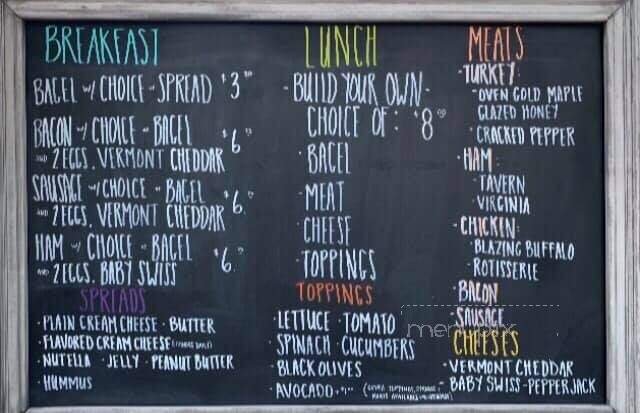 BREAKFAST
BAGEL w/ CHOICE of SPREAD $3
BACON w/ CHOICE of BAGEL
AND 2 EGGS, VERMONT CHEDDAR $6
SAUSAGE w/ CHOICE of BAGEL
AND 2 EGGS, VERMONT CHEDDAR $6
HAM w/ CHOICE of BAGEL
AND 2 EGGS, BABY SWISS $6
SPREADS
• PLAIN CREAM CHEESE • BUTTER
• FLAVORED CREAM CHEESE
• NUTELLA • JELLY • PEANUT BUTTER
• HUMMUS
LUNCH
- BUILD YOUR OWN -
CHOICE OF: $8
• BAGEL
• MEAT
• CHEESE
• TOPPINGS
TOPPINGS
• LETTUCE • TOMATO
• SPINACH • CUCUMBERS
• BLACK OLIVES
• AVOCADO
MEATS
• TURKEY:
- OVEN GOLD MAPLE
GLAZED HONEY
• CRACKED PEPPER
• HAM:
• TAVERN
• VIRGINIA
• CHICKEN:
• BLAZING BUFFALO
• ROTISSERIE
• BACON
• SAUSAGE
CHEESES
• VERMONT CHEDDAR
• BABY SWISS - PEPPER JACK
menupix